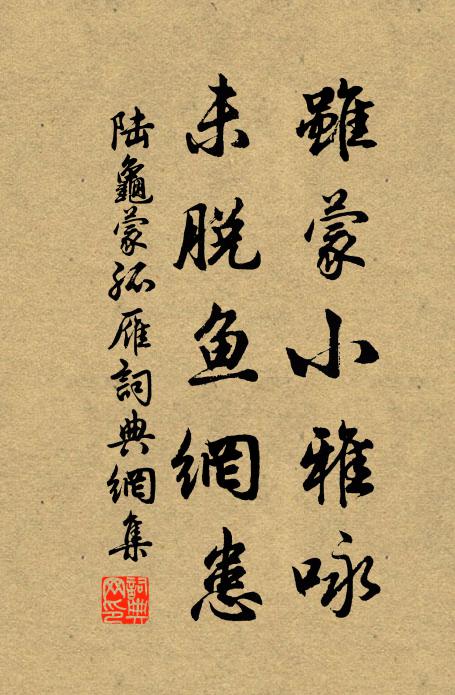 雖蒙小雅咏
未脱鱼網患
陆龜蒙孤雁詞典網集
詞典网印